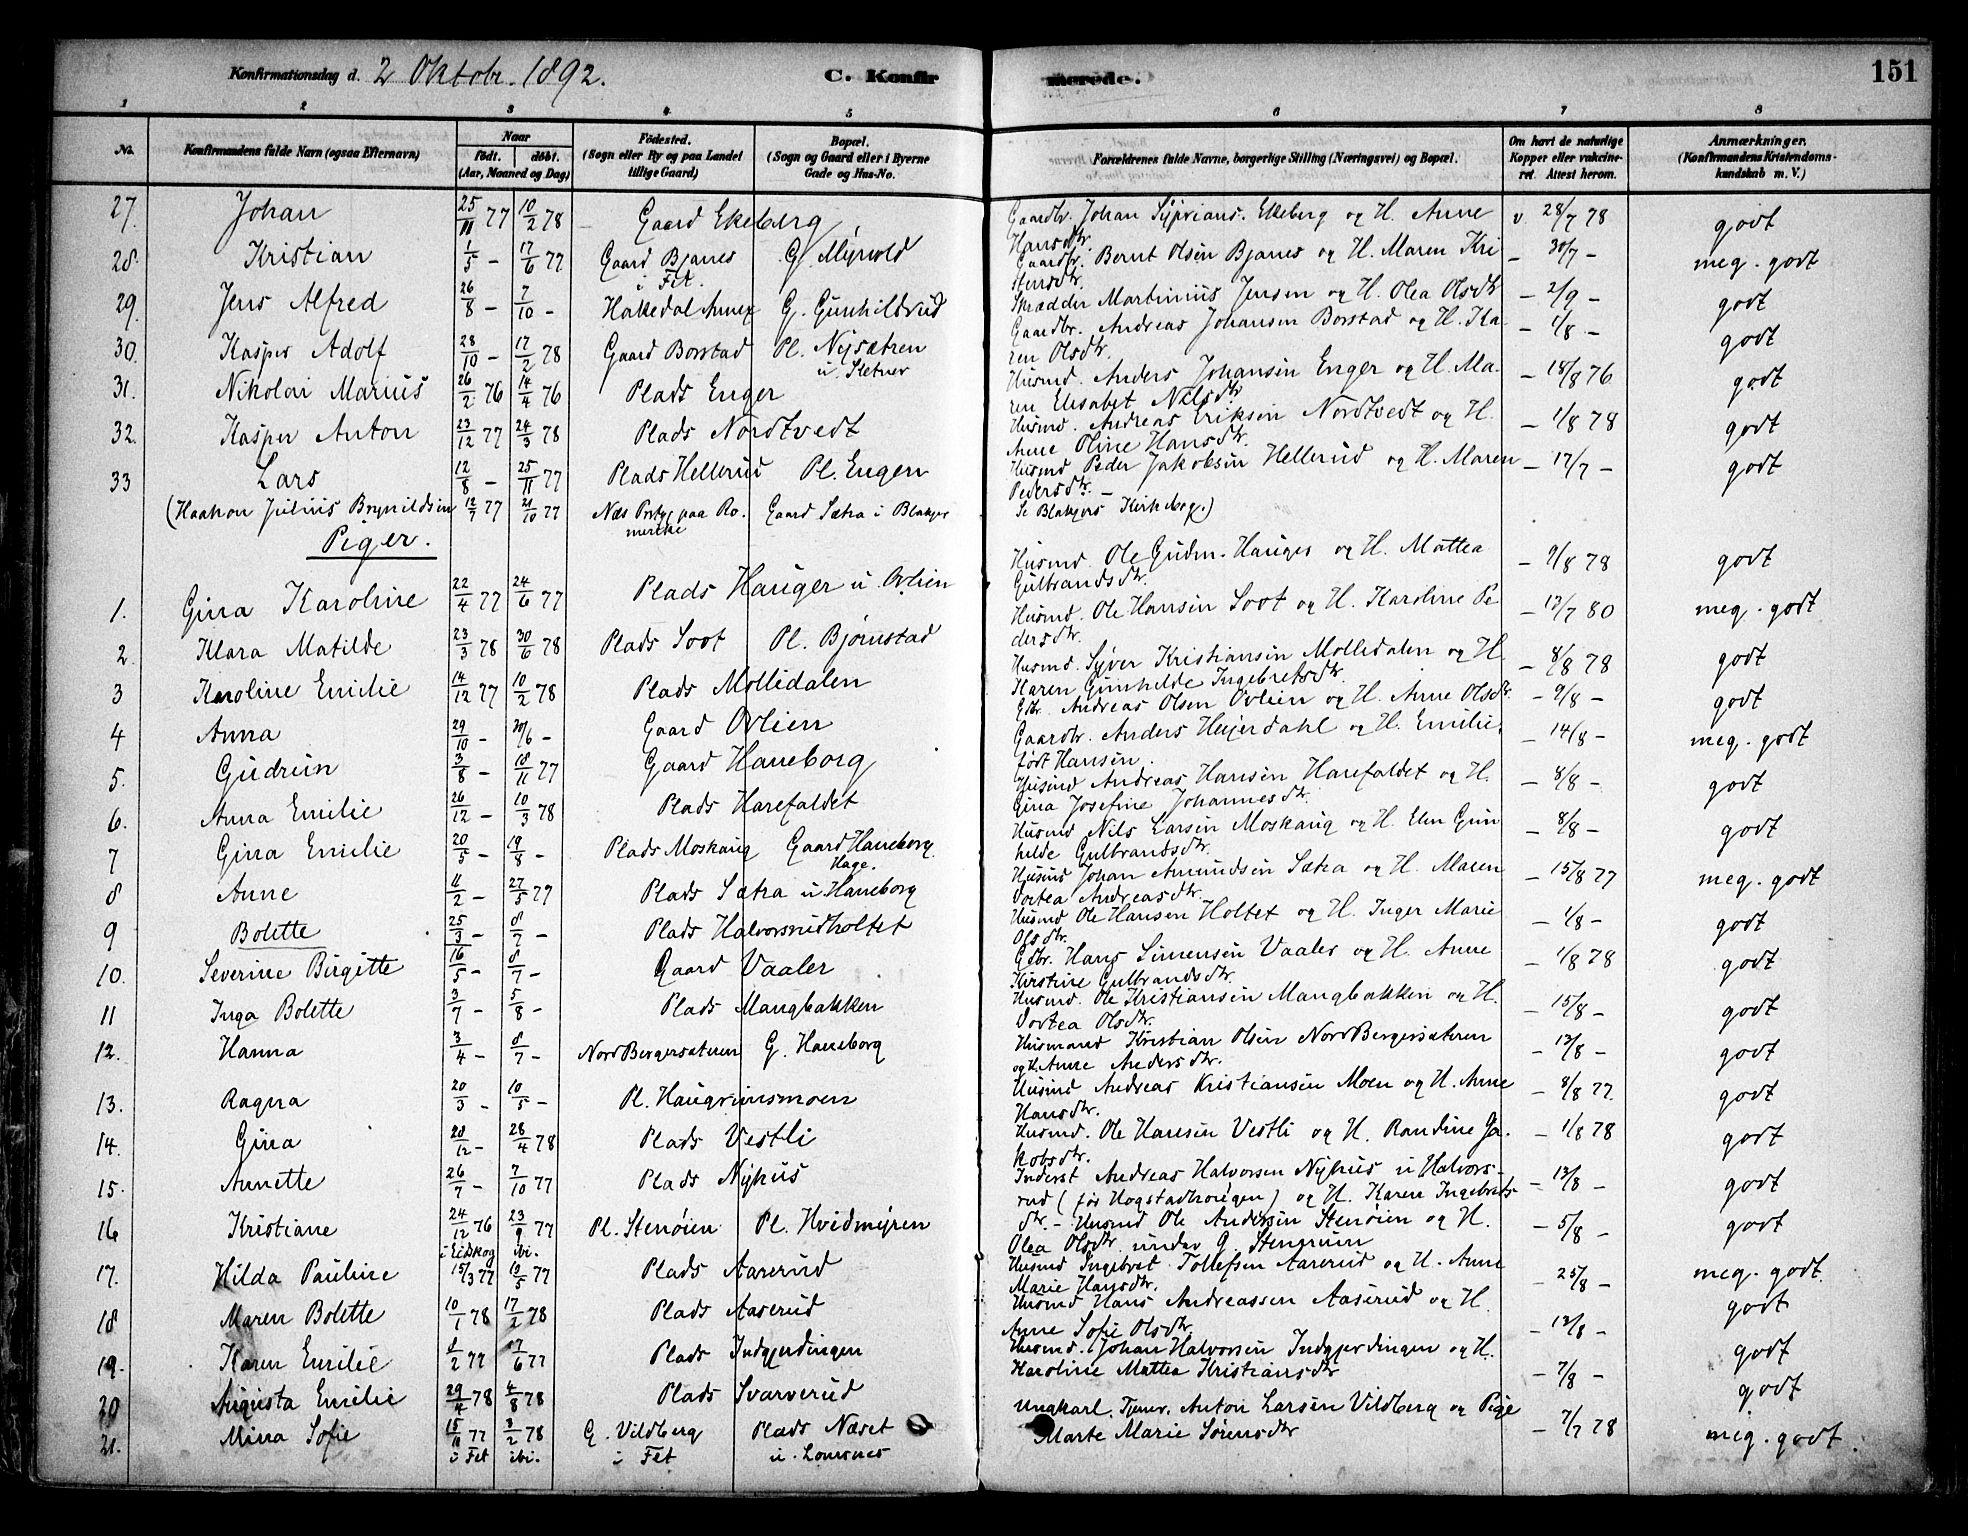 Konfirmationsdag d. 2 Oktobr. 1892. C. Konfir merede. 151
1 2 3 4 5 6 7 8
No. Konfirmandens fulde Navn (ogsaa Efternavn) Naar født. døbt. (Aar, Maaned og Dag) Fødested. (Sogn eller By og paa Landet tillige Gaard) Bopæl. (Sogn og Gaard eller i Byerne Gade og Hus-No. Forældrenes fulde Navne, borgerlige Stilling (Næringsvei) og Bopæl. Om havt de naturlige Kopper eller vakcineret. Attest herom. Anmærkninger. (Konfirmandens Kristendomskundskab m. V.)
27. Johan 25/11 77 10/2 78 Gaard Ekeberg Gaardbr. Johan Syprians. Ekeberg og H. Anne Hansdtr. v. 28/7 78 godt
28. Kristian 1/5 - 17/6 77 Gaard Bjanes i Fet. G. Myrvold Gaardbr. Bernt Olsen Bjanes og H. Maren Kristensdtr. - 30/7 - meg. godt
29. Jens Alfred 26/8 - 7/10 - Hakedal Annex G. Gunhildrud Skrædder Martinius Jensen og H. Olea Olsdtr - 2/9 - godt
30. Kasper Adolf 28/10 - 17/2 78 Gaard Borstad Pl. Nysætren u. Sletner Gaardbr. Andreas Johansen Borstad og H. Karen Olsdtr. - 1/8 - godt
31. Nikolai Marius 26/2 76 14/4 76 Plads Enger Husmd. Anders Johansen Enger og H. Maren Elisabet Nilsdtr - 18/8 76 godt
32. Kasper Anton 23/12 77 24/3 78 Plads Nordtvedt Husmd. Andreas Eriksen Nordtvedt og H. Anne Oline Hansdtr. - 1/8 78 godt
33 Lars 12/8 - 25/11 77 Plads Hellerud Pl. Engen Husmd Peder Jakobsen Hellerud og H. Maren Pedersdtr. - - 17/7 - godt
(Haakon Julius Brynildsen 12/7 77 21/10 77 Næs Prstgj. paa Romerike Gaard Sætra i Blakjer Se Blakjers Kirkebog.)
Piger.
1. Gina Karoline 22/4 77 24/6 77 Plads Hauger u. Ovlien Husmd. Ole Gudm. Hauger og H. Mattea Gulbrandsdtr. - 9/8 78 godt
2 Klara Matilde 23/3 78 30/6 78 Plads Soot Pl. Bjørnstad Husmd. Ole Hansen Soot og H. Karoline Pedersdtr. - 13/7 80 meg. godt
3 Karoline Emilie 14/12 77 10/2 78 Plads Mollidalen Husmd. Syver Kristiansen Mollidalen og H. Karen Gunhilde Ingebretsdtr. - 8/8 78 godt
4 Anna 29/10 - 30/6 - Gaard Ovlien Gbr. Andreas Olsen Ovlien og H. Anne Olsdtr. - 9/8 - godt
5. Gudrun 3/8 - 18/11 77 Gaard Haneborg Gaardbr. Anders Heyerdahl og H. Emilie, født Hansen. - 14/8 - meg. godt
6. Anna Emilie 26/12 - 10/3 78 Plads Harefaldet Husmd Andreas Hansen Harefaldet og H. Gina Josefine Johannesdtr. - 8/8 - godt
7 Gina Emilie 20/5 - 19/8 - Plads Moskaug Gaard Haneborg Hage. Husmd Nils Larsen Moskaug og H. Elen Gunhilde Gulbrandsdtr. - 8/8 - godt
8 Anne 11/2 - 27/5 79 Plads Sætra u Haneborg Husmd Johan Amundsen Sætra og H. Maren Dortea Andreasdtr. - 15/8 77 meg. godt
9 Bolette 25/3 - 8/7 - Plads Halvorsrudholtet Husmd Ole Hansen Holtet og H. Inger Marie Olsdtr. - 1/8 - godt
10. Severine Birgitte 16/5 - 8/7 - Gaard Vaaler Gdbr. Hans Simensen Vaaler og H. Anne Kirstine Gulbrandsdtr. - 1/8 78 godt
11 Inga Bolette 3/7 - 5/8 - Plads Mangbakken Husmd. Ole Kristiansen Mangbakken og H. Dortea Olsdtr. - 15/8 - godt
12. Hanna 3/4 - 8/7 - NordBergersæteren G. Haneborg Husmand Kristian Olsen NordBergersæteren og H. Anne Andersdtr. - 13/8 - godt
13. Ragna 20/3 - 10/5 - Pl. Haugrimsmoen Husmd Andreas Kristiansen Moen og H. Anne Hansdtr. - 8/8 77. godt
14. Gina 28/12 - 28/4 78 Plads Vestli Husmd. Ole Hansen Vestli og H. Randine Jakobsdtr. - 1/8 78 godt
15. Annette 26/7 - 7/10 77 Plads Nyhus Inderst Andreas Halvorsen Nyhus u Halvorsrud (før Hogstadhougen) og H. Karen Ingebretsdtr. - - 13/8 - godt
16 Kristiane 24/12 76 23/9 77 Pl. Stenøien Pl. Hvidmyren Husmd Ole Andersen Stenøien og H. Olea Olsdtr. under G. Stenrum - 5/8 - godt
17. Hilda Pauline i Eidskog 15/3 77 ibi. 10/5 77 Plads Aaserud Husmd Ingebret Tollefsen Aaserud og H. Anne Marie Hansdtr. - 25/8 - meg. godt.
18 Maren Bolette 10/1 78 17/2 78 Plads Aaserud Husmd Hans Andreassen Aaserud og H. Anne Sofie Olsdtr. - 12/8 - godt
19. Karen Emilie 1/2 77 17/6 77 Plads Indgjerdingen Husmd. Johan Halvorsen Indgjerdingen og H. Karoline Mattea Kristiansdtr - 7/8 - godt
20 Augusta Emilie 29/4 78 4/8 78 Plads Svarverud godt
21. Mina Sofie 15/11 77 i Fet 3/2 78 ibi. G. Vildberg i Fet Plads Næset u. Lomsnes Ungkarl. Tjener. Anton Larsen Vildberg og Pige Marte Marie Sørensdtr - 7/7 78 meg. godt.